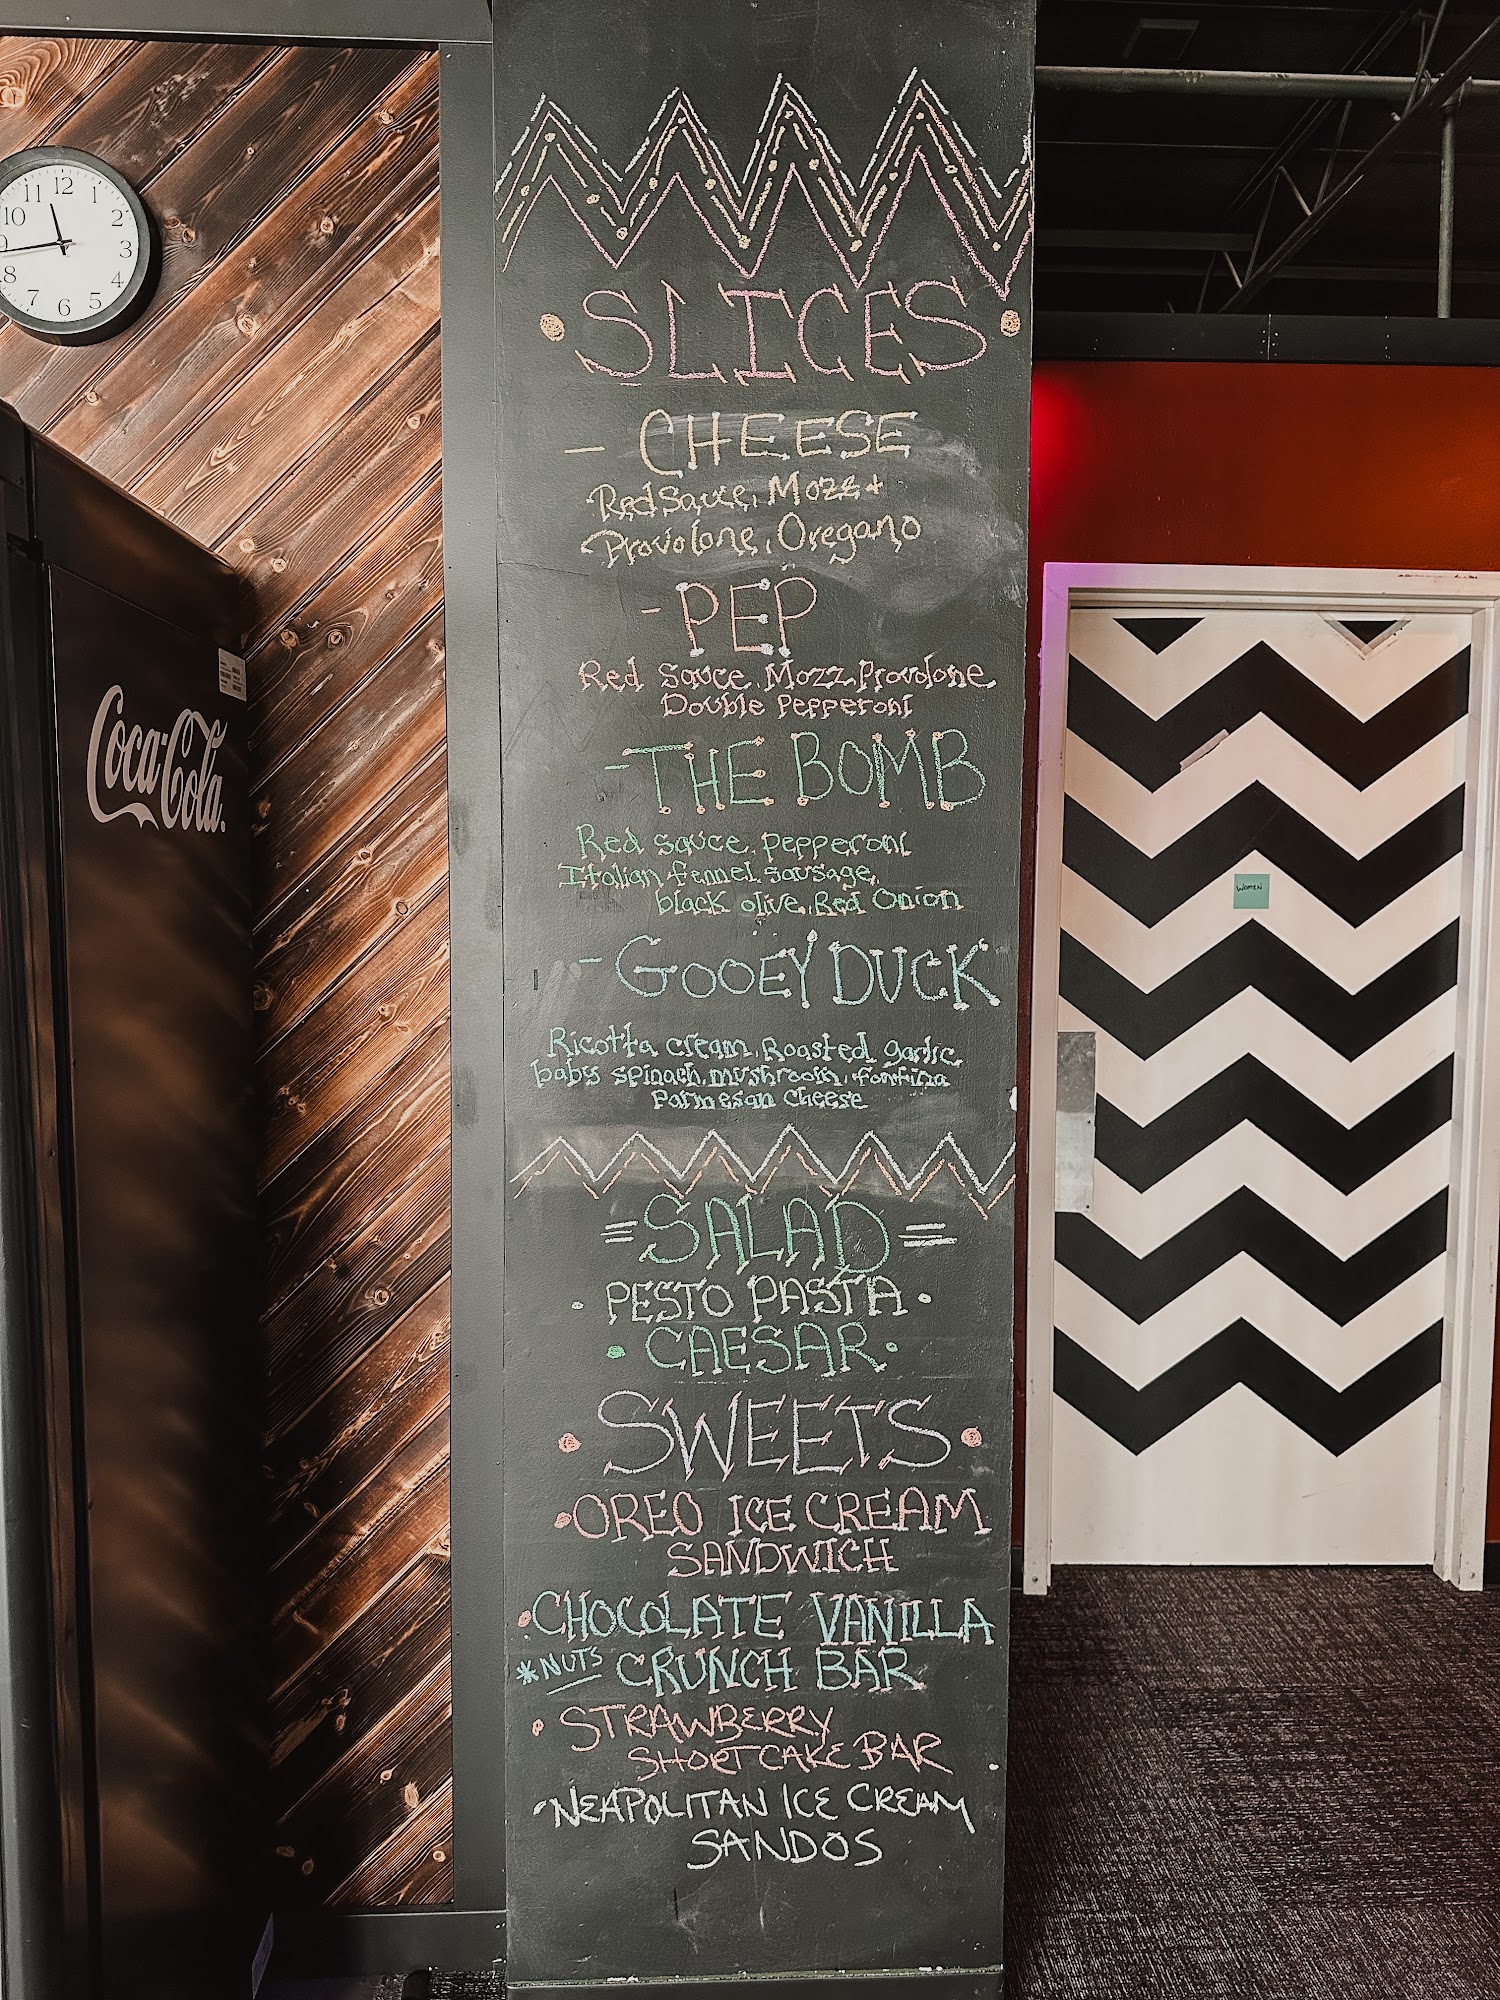 11 12 1
10 2
9 3
8 4
7 6 5
Coca-Cola
SLICES
- CHEESE
Red Sauce, Mozz +
Provolone, Oregano
- PEP
Red Sauce, Mozz, Provolone,
Double Pepperoni
- THE BOMB
Red sauce, pepperoni
Italian fennel sausage,
black olive, Red Onion
- GOOEY DUCK
Ricotta cream, Roasted garlic,
baby spinach, mushroom, fontina
Parmesan cheese
WOMEN
= SALAD =
• PESTO PASTA •
• CAESAR •
• SWEETS •
• OREO ICE CREAM
SANDWICH
• CHOCOLATE VANILLA
* NUTS CRUNCH BAR
• STRAWBERRY
SHORTCAKE BAR
• NEAPOLITAN ICE CREAM
SANDOS